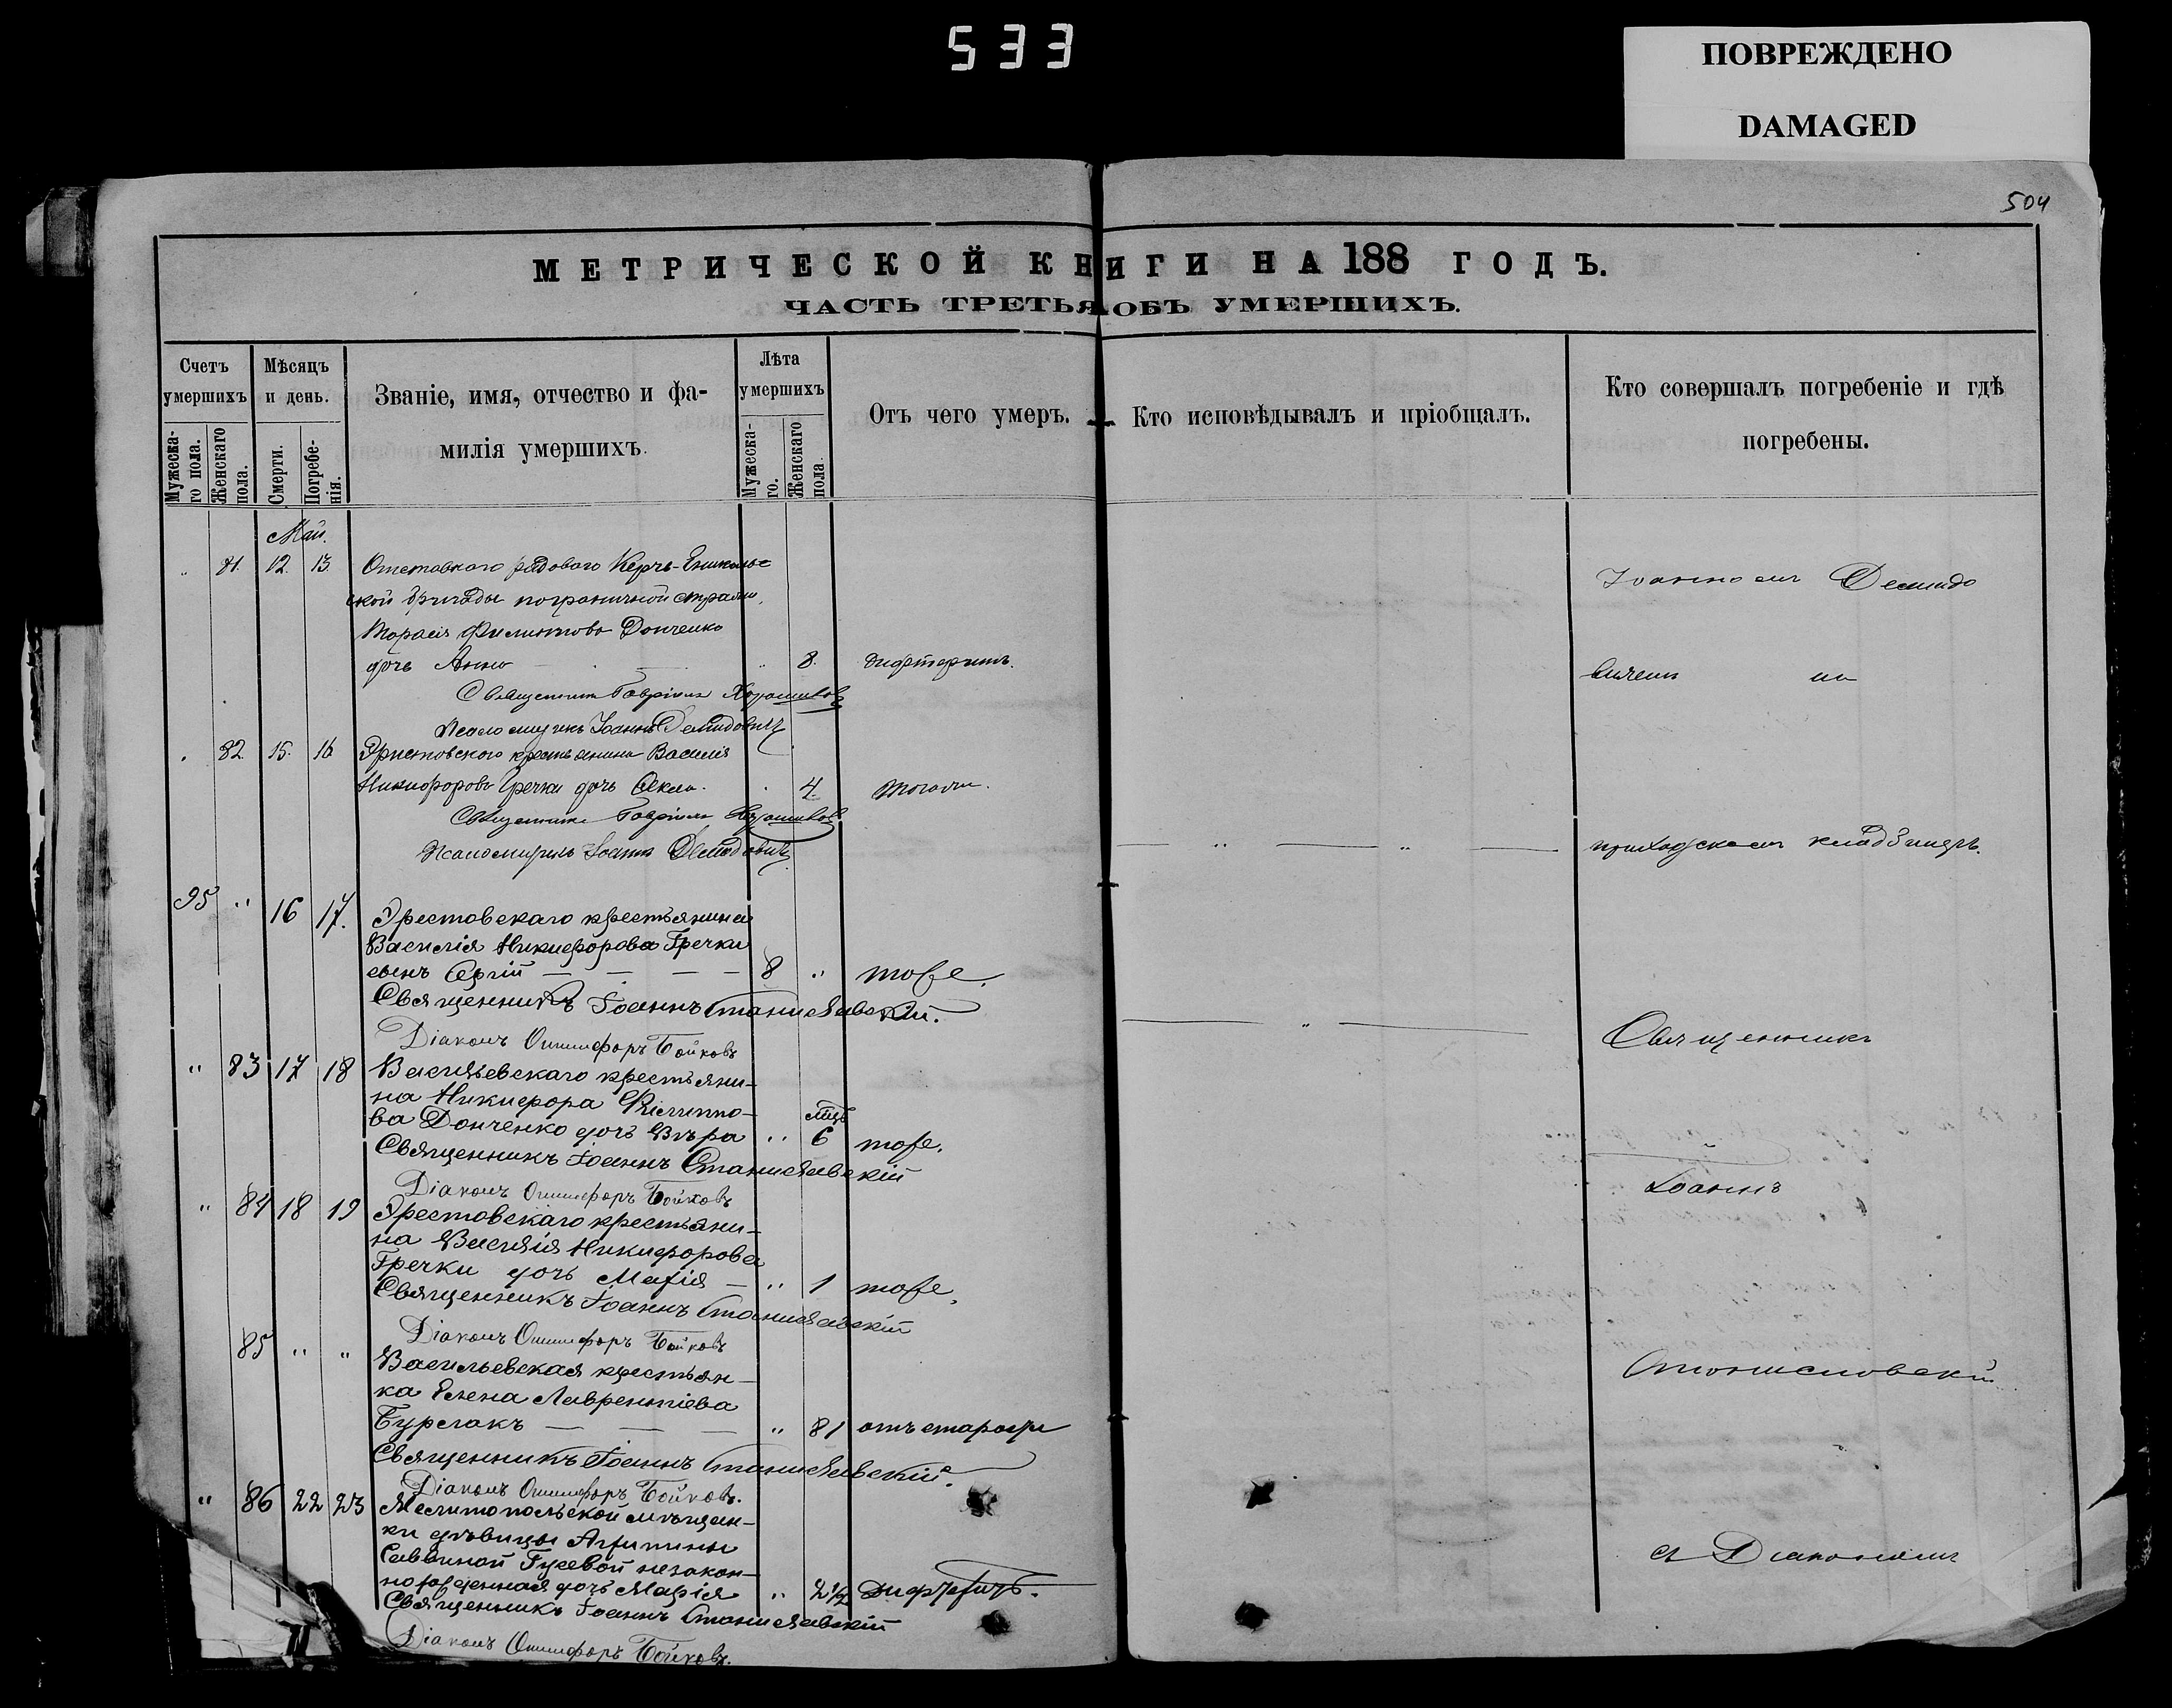 533
ПОВРЕЖДЕНО
DAMAGED
504
МЕТРИЧЕСКОЙ КНИГИ НА 188 ГОДЪ.
ЧАСТЬ ТРЕТЬЯ ОБЪ УМЕРШИХЪ.
Счетъ умершихъ
Мужеска-
го пола.
Женскаго
пола.
Мѣсяцъ
и день.
Смерти.
Погребе-
нія.
Званіе, имя, отчество и фа-
милія умершихъ.
Лѣта
умершихъ
Мужеска-
го.
Женскаго
пола.
Отъ чего умеръ.
Кто исповѣдывалъ и пріобщалъ.
Кто совершалъ погребеніе и гдѣ
погребены.
Май.
" 81. 12. 13. Отставного рядового Керчь-Еникаль-
ской бригады пограничной стражи,
Тарасія Филиппова Донченко
дочь Анна " 8. дифтеритъ.
Священникъ Гавріилъ
Псаломщикъ Іоаннъ Демидовичъ
" 82. 15. 16 крестьянина Василія
Никифорова Гречки дочь " 4.
Священникъ Гавріилъ
Псаломщикъ Іоаннъ Демидовичъ
95 " 16 17. Эрестовскаго крестьянина
Василія Никифорова Гречки
сынъ Сергій — — — — 8 " тоже.
Священникъ Іоаннъ Станиславскій.
Діаконъ Онисифоръ Бойковъ
" 83 17 18 Васильевскаго крестьяни-
на Никифора Филиппо-
ва Донченко дочь Вѣра " мцъ 6 тоже.
Священникъ Іоаннъ Станиславскій
Діаконъ Онисифоръ Бойковъ
" 84 18 19 Эрестовскаго крестьяни-
на Василія Никифорова
Гречки дочь Марія — " 1 тоже.
Священникъ Іоаннъ Станиславскій
Діаконъ Онисифоръ Бойковъ
85 " " Васильевская крестьян-
ка Елена Лаврентіева
Бурлакъ — — — " 81 отъ старости
Священникъ Іоаннъ Станиславскій
Діаконъ Онисифоръ Бойковъ.
" 86 22 23 Мелитопольской мѣщан-
ки дѣвицы
Саввиной Гусевой незакон-
норожденная дочь Марія " 2½ дифтеритъ.
Священникъ Іоаннъ Станиславскій
Діаконъ Онисифоръ Бойковъ.
Іоанномъ Демидо
вичемъ на
" — " — приходскомъ кладбищѣ.
— " — Священникъ
Іоаннъ
Станиславскій
съ Діакономъ